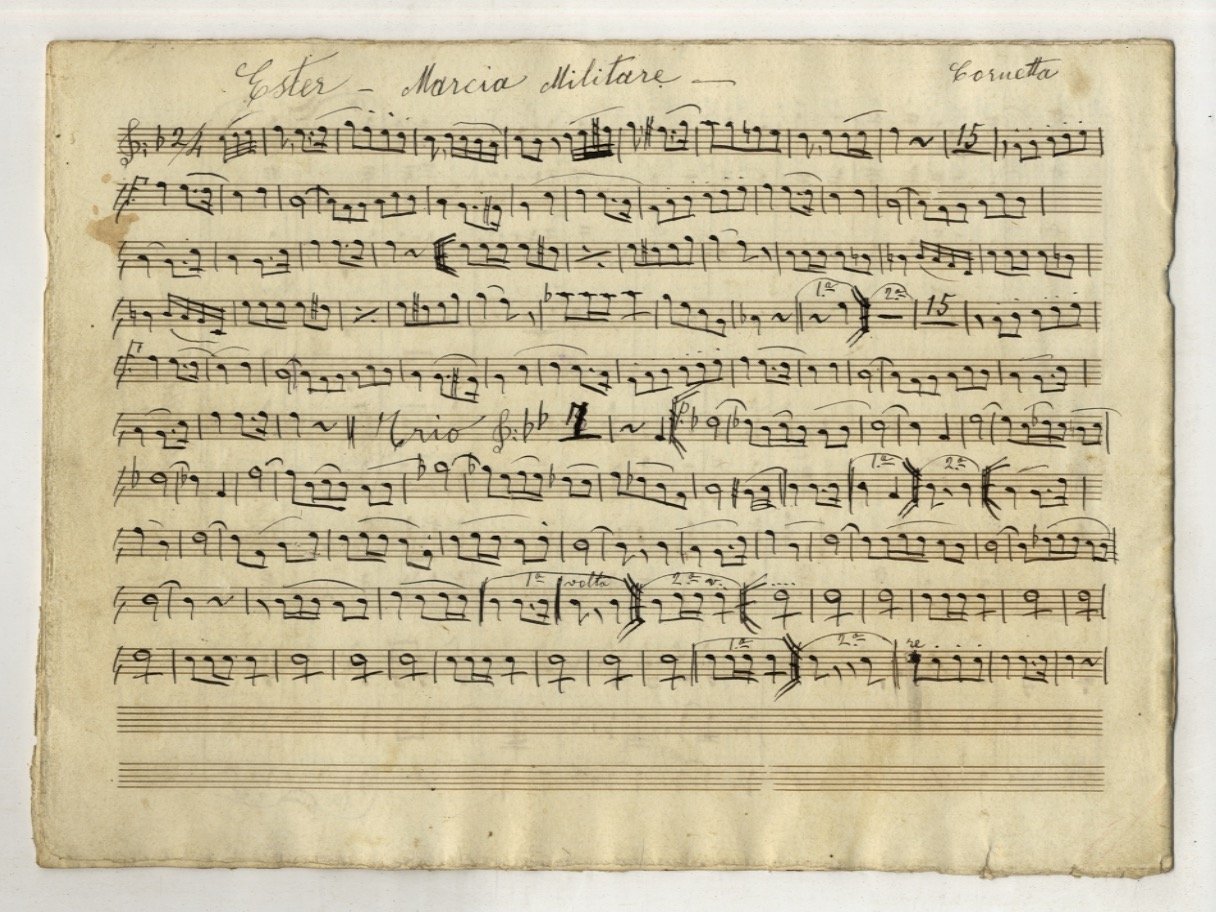 Ester - Marcia Militare -
Cornetta
2/4
15
1.a 2.a
15
Trio
1.a 2.a
1a volta 2a v.
1.a 2.a